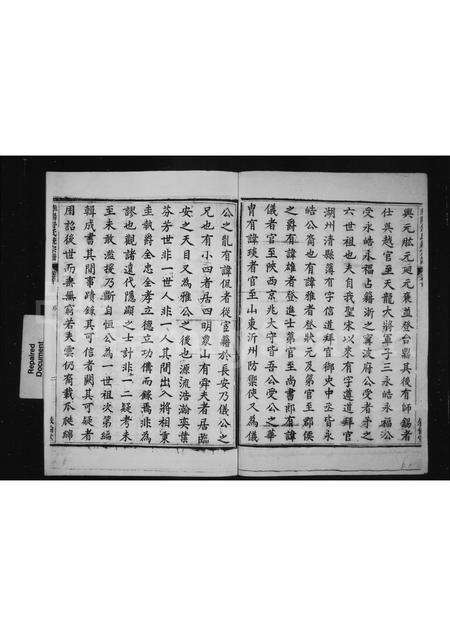 興元肱元廻元裒並登台鼎其後有師錫者
仕吳越官至天龍大將軍子三永皓永福公
受永皓永福占籍浙之冀波府公受者予之
六世祖也夫自我聖宋以來有字遵道拜官
湖州清縣簿有字信道拜官御史中丞皆永
皓公裔也有諱雍者登狀元及第官至郡侯
之爵有諱雄者登進士第官至尚書郎有諱
儀者官至陝西京兆大守皆吾公受公之華
胄有諱琰者官至山東沂州防禦使又為儀
公之亂有諱侃者從宦籍於長安乃儀公之
兄也有小四者居四明眾山有舜夫者居臨
安之天目又為雅公之後也源流浩瀚奕葉
芬芳世非一世人非一人其間出入將相秉
圭執爵全忠全孝立德立功儒而錄蒿非為
謬也觀諸遺代隱顯之士計非一二疑考未
至未敢濫援乃斷自恒公為一世祖次第編
輯成書其間事蹟錄其可信者闕其可疑者
用詔後世而無窮若夫雲仍裔裁瓜瓞綿
Repaired
Document